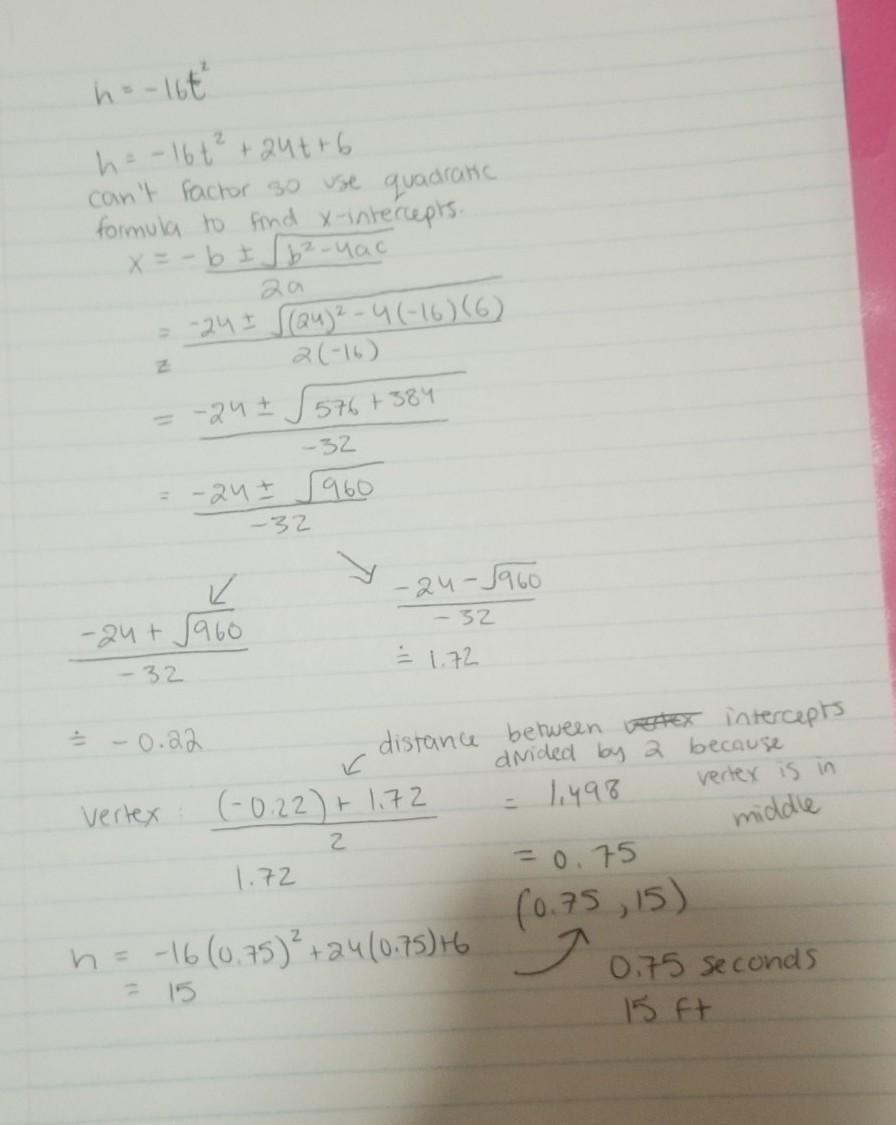 h = -16t²
h = -16t² + 24t + 6
can't factor so use quadratic
formula to find x-intercepts.
x = -b ± √b² - 4ac
2a
= -24 ± √(24)² - 4(-16)(6)
2(-16)
= -24 ± √576 + 384
-32
= -24 ± √960
-32
↙ ↘
-24 + √960
-32
≐ -0.22
-24 - √960
-32
≐ 1.72
distance between vertex intercepts
divided by 2 because
vertex is in
middle
vertex : (-0.22) + 1.72
2
= 1.498
1.72
= 0.75
(0.75, 15)
h = -16(0.75)² + 24(0.75)+6
= 15
0.75 seconds
15 ft